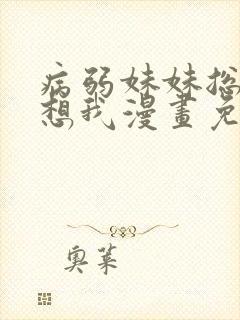 病弱妹妹总
想我漫畫免
奥莱